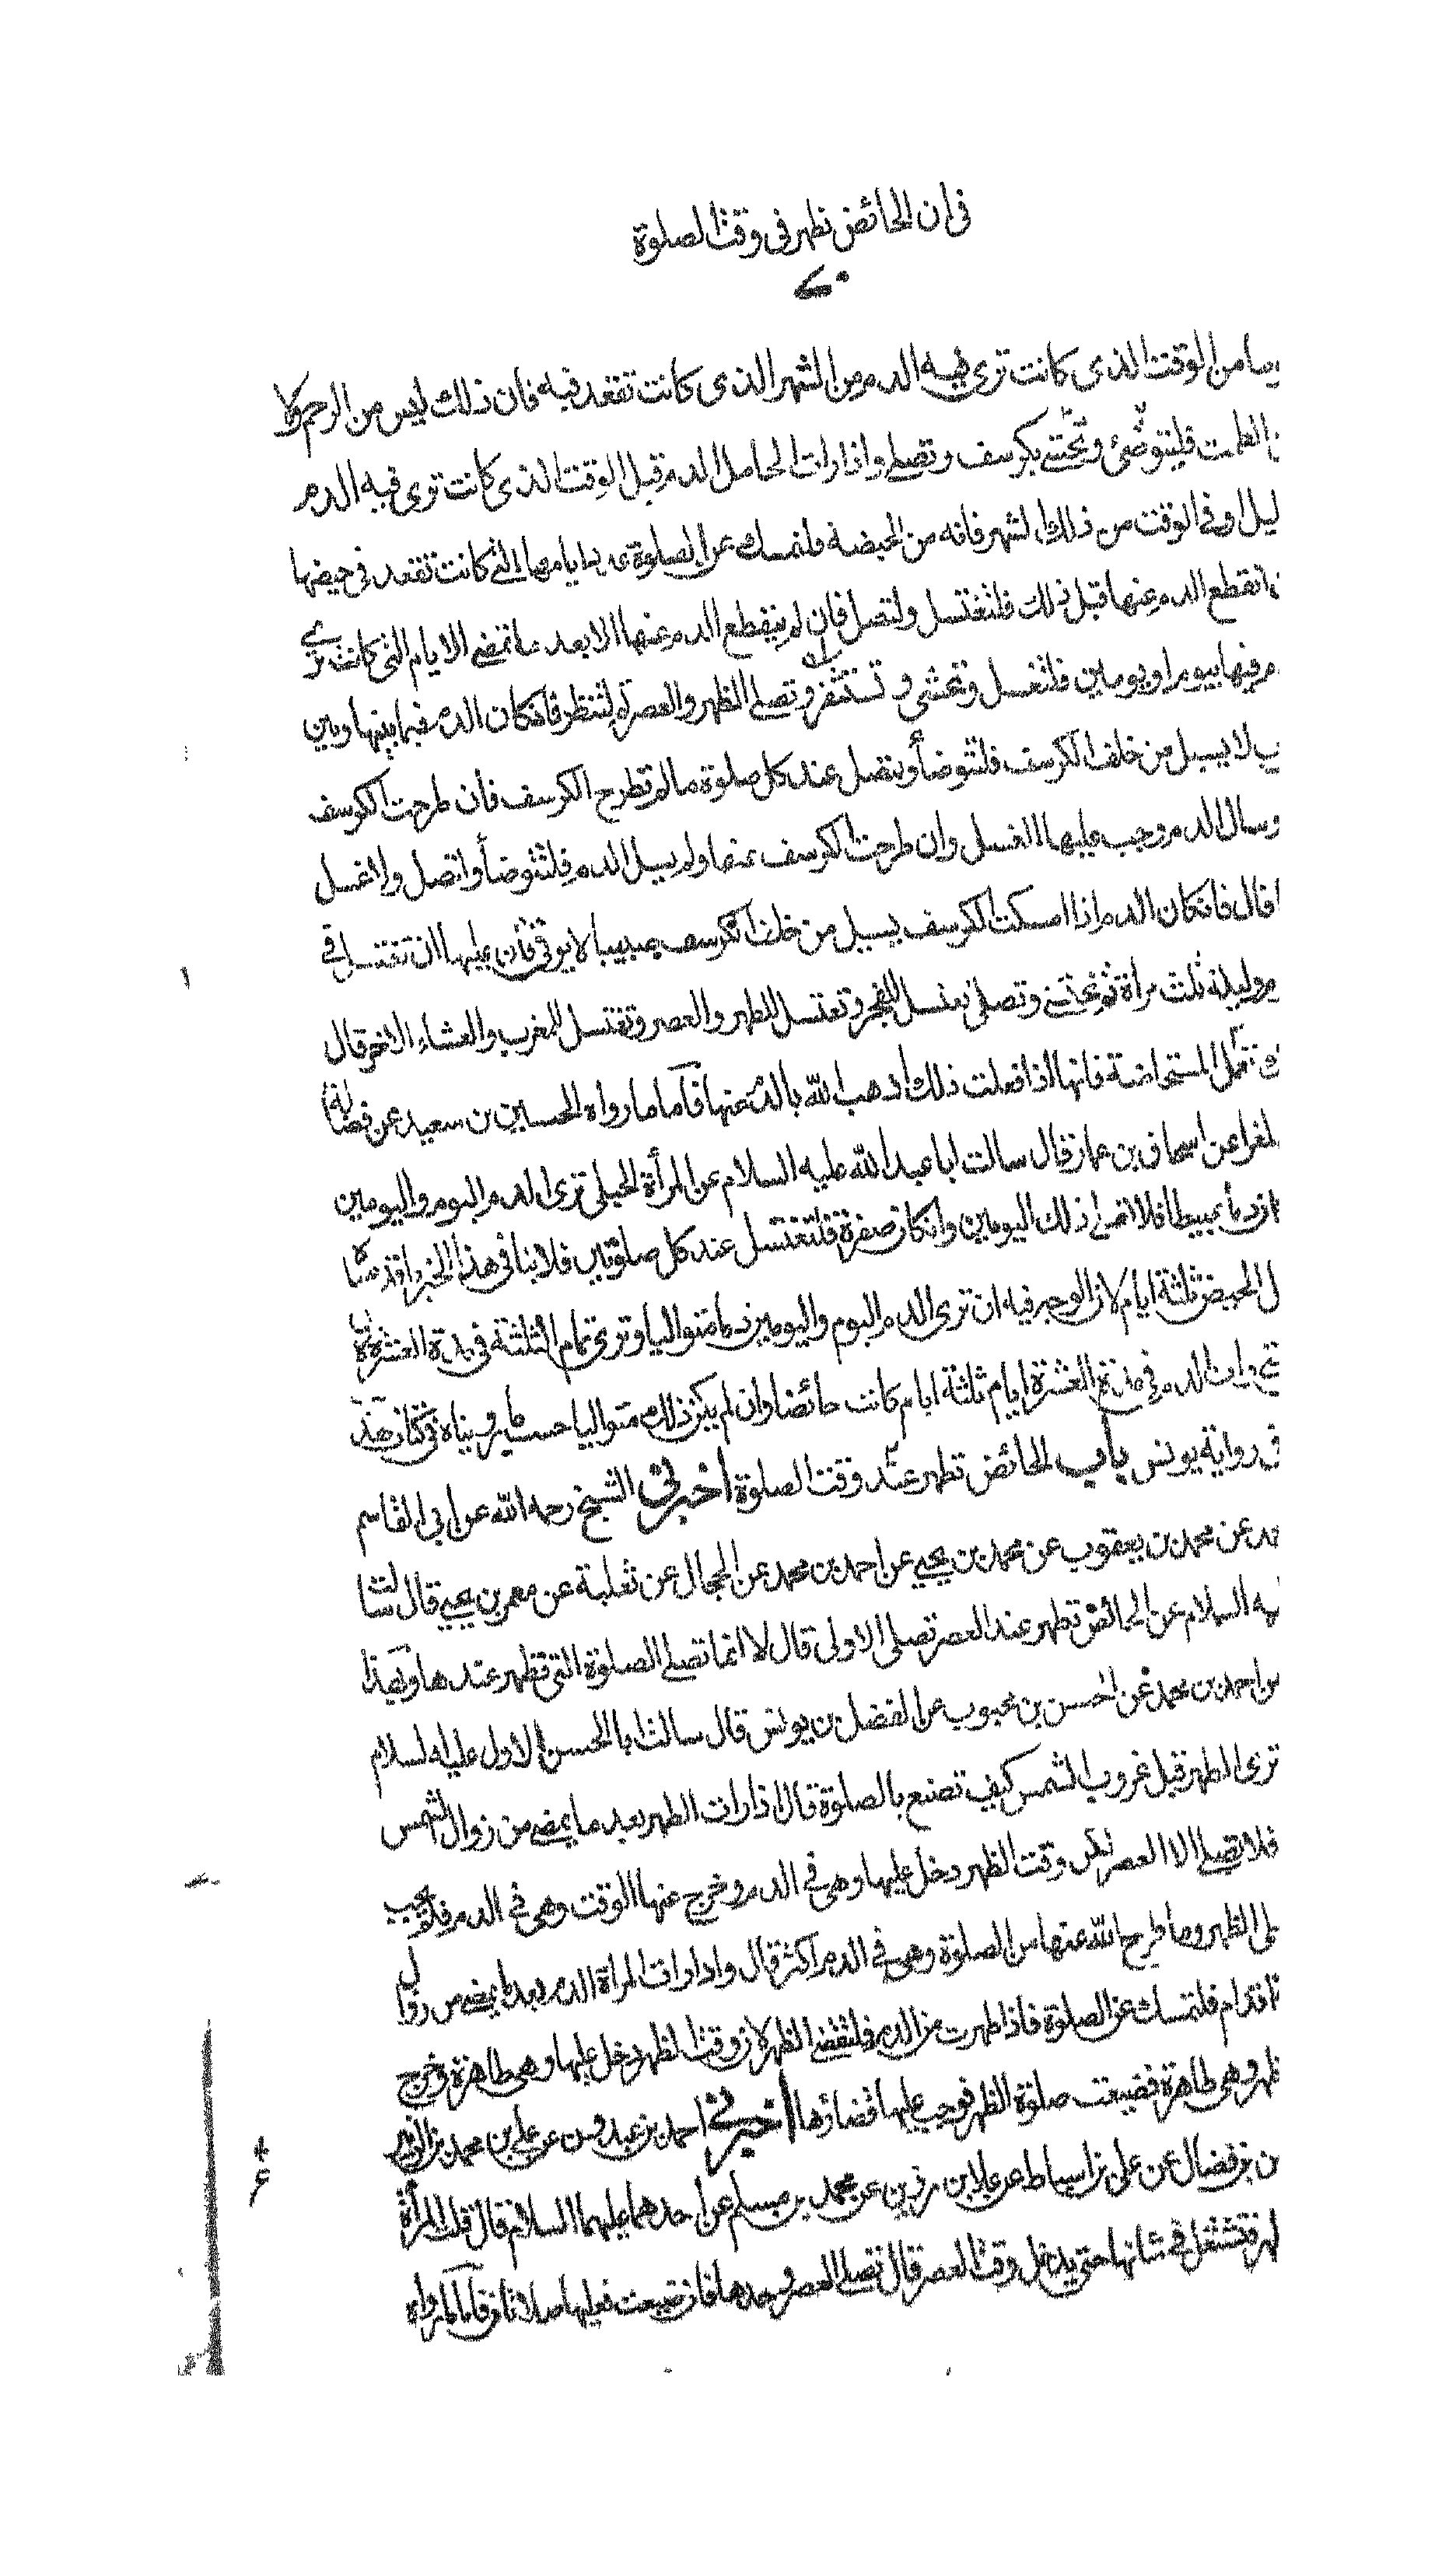 فى ان الحائض تطهر فى وقت الصلوة
من الوقت الذى كانت ترى فيه الدم من الشهر الذى كانت تقعد فيه فان ذلك ليس من الرحم ولا
الطمث فليتوضئ وتحتشى بكرسف وتصلى واذا رات الحامل الدم قبل الوقت الذى كانت ترى فيه الدم
او فى الوقت من ذلك الشهر فانه من الحيضة فلتمسك عن الصلوة عدد ايامها التى كانت تقعد فى حيضها
انقطع الدم عنها قبل ذلك فلتغتسل ولتصل فان لم ينقطع الدم عنها الا بعد ما تمضى الايام التى كانت ترى
فيها بيوم او يومين فلتغسل وتحتشى و تستثفر وتصلى الظهر والعصر ثم لتنظر فانكان الدم فيما بينها وبين
لا يسيل من خلف الكرسف فلتتوضأ ولتصل عند كل صلوة ما لم تطرح الكرسف فان طرحت الكرسف
وسال الدم وجب عليها الغسل وان طرحت الكرسف عنها ولم يسل الدم فلتتوضأ ولتصل ولا غسل
قال فانكان الدم اذا امسكت الكرسف يسيل من خلف الكرسف صبيبا لا يرقى فان عليها ان تغتسل فى
وليلة ثلث مراة ثم تحتشى وتصلى تغتسل للفجر وتغتسل للظهر والعصر وتغتسل للمغرب والعشاء الاخر قال
تفعل المستحاضة فانها اذا فعلت ذلك اذهب الله بالدم عنها فأما ما رواه الحسين بن سعيد عن فضالة
عن اسحاق بن عمار قال سالت ابا عبد الله عليه السلام عن المرأة الحبلى ترى الدم اليوم واليومين
دما عبيطا فلا تصلى ذلك اليومين وانكان صفرة فلتغتسل عند كل صلوتين فلا ينافى هذا الخبر ما قدمناه
الحيض ثلثة ايام لان الوجه فيه ان ترى الدم اليوم واليومين دما متواليا وترى تمام الثلثة فى مدة العشرة
رات الدم فى مدة العشرة ايام ثلثة ايام كانت حائضا وان لم يكن ذلك متواليا حسب ما بيناه فى كتاب
فى رواية يونس باب الحائض تطهر عند وقت الصلوة اخبرنى الشيخ رحمه الله عن ابى القاسم
عن محمد بن يعقوب عن محمد بن يحيى عن احمد بن محمد عن الحجال عن ثعلبة عن معمر بن يحيى قال سالت
السلام عن الحائض تطهر عند العصر تصلى الاولى قال لا انما تصلى الصلوة التى تطهر عندها وبهذا
احمد بن محمد عن الحسن بن محبوب عن الفضل بن يونس قال سالت ابا الحسن الاول عليه السلام
ترى الطهر قبل غروب الشمس كيف تصنع بالصلوة قال اذا رات الطهر بعد ما يمضى من زوال الشمس
فلا تصلى الا العصر لان وقت الظهر دخل عليها وهى فى الدم وخرج عنها الوقت وهى فى الدم فلم يجب
الظهر وما طرح الله عنها من الصلوة وهى فى الدم اكثر قال واذا رات المراة الدم بعد ما يمضى من زوال
اقدام فلتمسك عن الصلوة فاذا طهرت من الدم فلتقضى الظهر لان وقت الظهر دخل عليها وهى طاهرة وخرج
وهى طاهرة فضيعت صلوة الظهر فوجب عليها قضاؤها اخبرنى احمد بن عبدون عن على بن محمد بن الزبير
بن فضال عن على بن اسباط عن علا بن رزين عن محمد بن مسلم عن احدهما عليهما السلام قال قلت المرأة
فتشتغل فى شانها حتى يدخل وقت العصر قال تصلى العصر وحدها فان ضيعت فعليها صلاتان فأما ما رواه